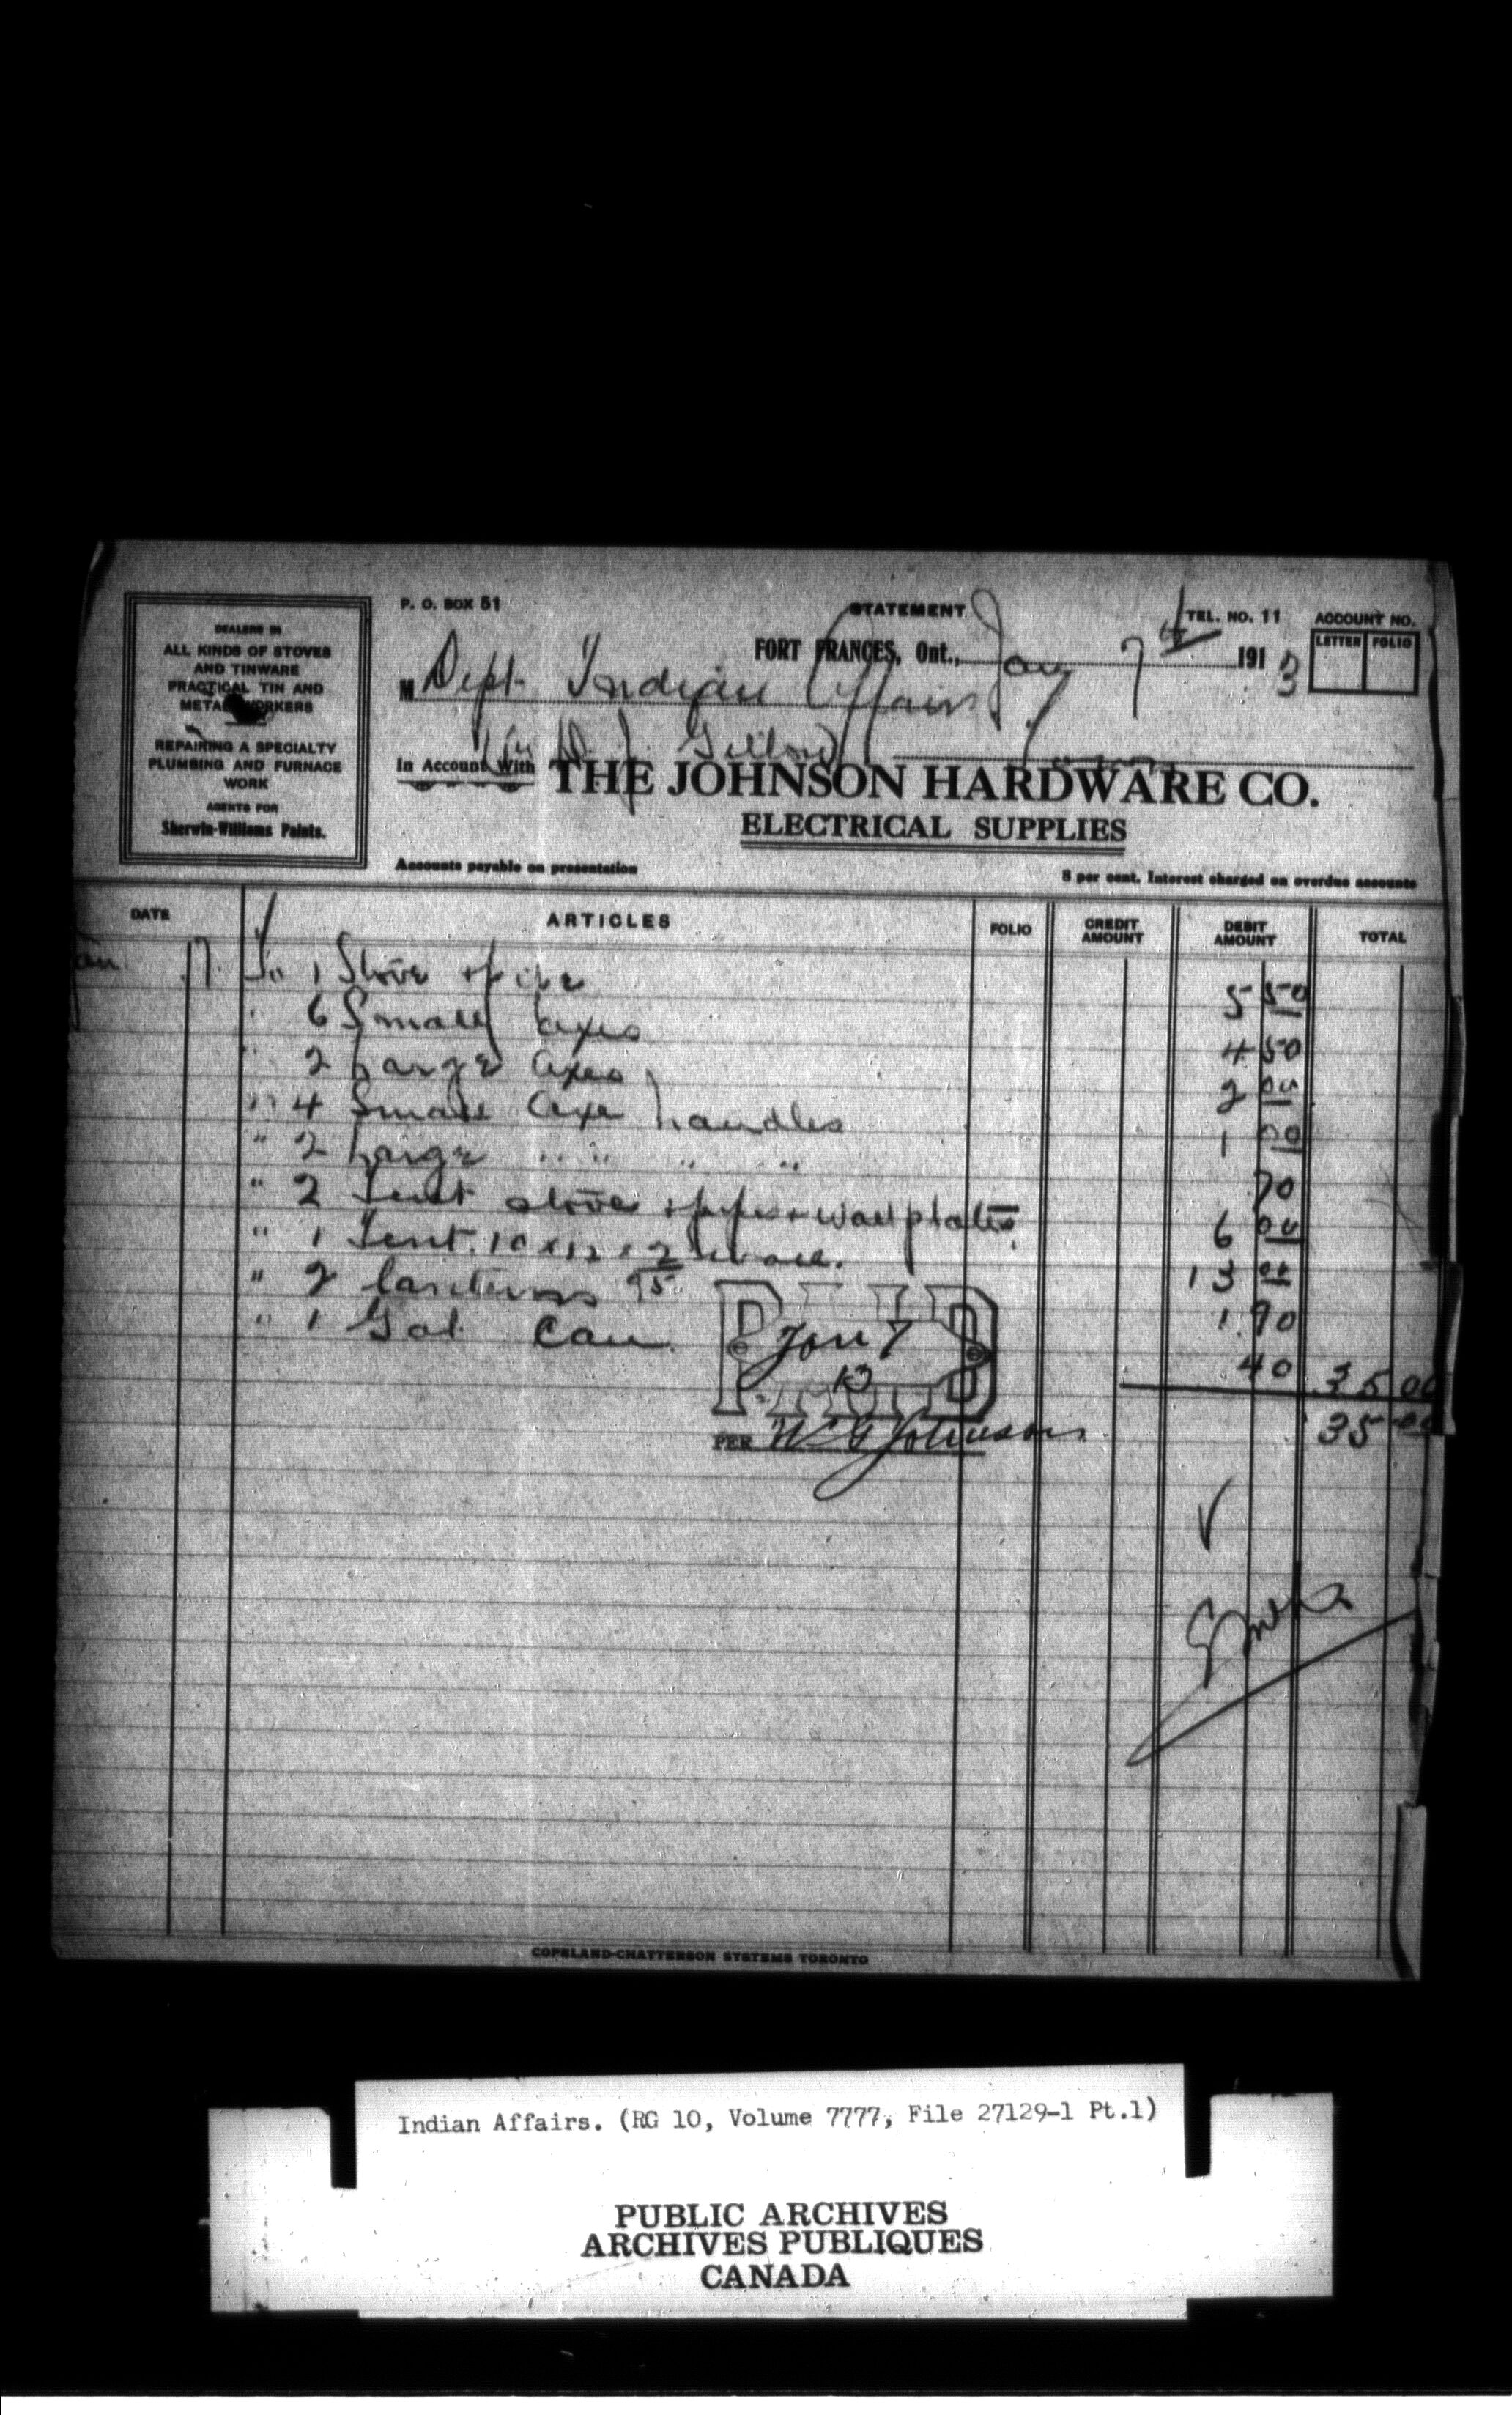 P. O. BOX 51
STATEMENT
TEL. NO. 11
ACCOUNT NO.
LETTER FOLIO
FORT FRANCES, Ont., Jany 7th 1913
M Dept Indian Affairs
DEALERS IN
ALL KINDS OF STOVES
AND TINWARE
PRACTICAL TIN AND
METAL WORKERS
REPAIRING A SPECIALTY
PLUMBING AND FURNACE
WORK
AGENTS FOR
Sherwin-Williams Paints.
In Account With THE JOHNSON HARDWARE CO.
ELECTRICAL SUPPLIES
Accounts payable on presentation
8 per cent. Interest charged on overdue accounts
DATE ARTICLES FOLIO CREDIT AMOUNT DEBIT AMOUNT TOTAL
Jan. 7. To 1 Stove + pipe 5 50
" 6 Small axes 4 50
" 2 Large axes 2 00
" 4 Small axe handles 1 00
" 2 Large " " " " 70
" 2 Tent stoves + pipes + wall plates 6 00
" 1 Tent. 10 x 12 x 2 wall. 13 00
" 2 lanterns 95 1.90
" 1 Gal. Can. 40 35 00
35 00
PAID
Jan 7
13
PER W G Johnson
COPELAND-CHATTERSON SYSTEMS TORONTO
Indian Affairs. (RG 10, Volume 7777, File 27129-1 Pt.1)
PUBLIC ARCHIVES
ARCHIVES PUBLIQUES
CANADA